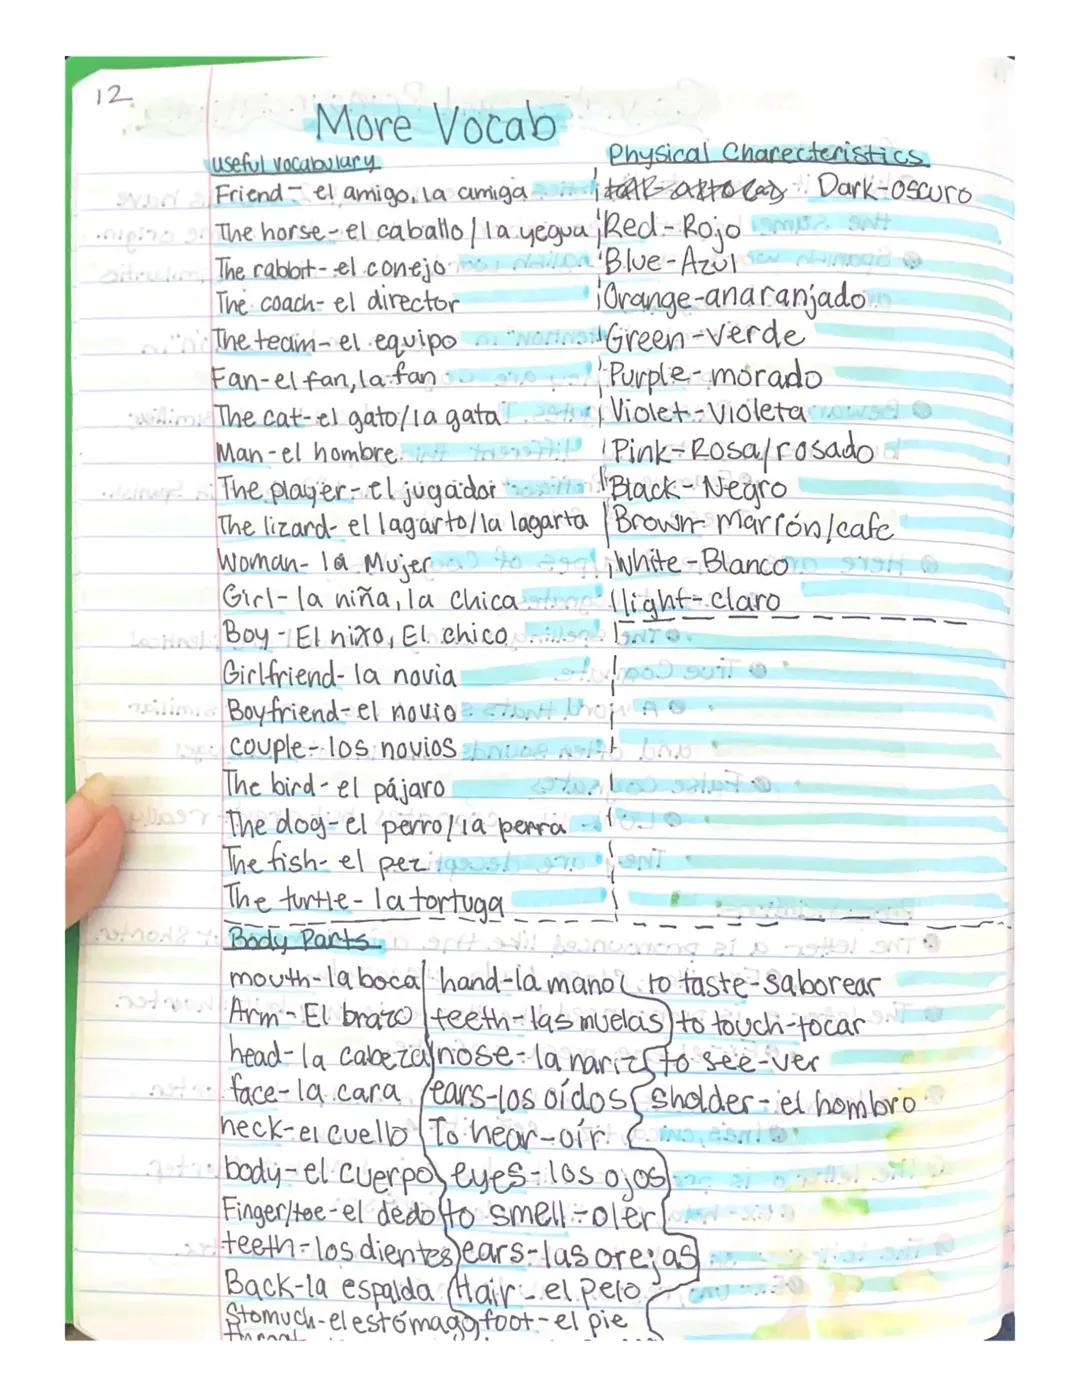 12
More Vocab
useful vocabulary
Friend - el amigo, la amiga
The horse - el caballo / la yegua
The rabbit - el conejo
The coach - el director
The team - el equipo
Fan - el fan, la fan
The cat - el gato/la gata
Man - el hombre
The player - el jugador
The lizard - el lagarto/la lagarta
Woman - la Mujer
Girl - la niña, la chica
Boy - El niño, El chico
Girlfriend - la novia
Boyfriend - el novio
couple - los novios
The bird - el pájaro
The dog - el perro/la perra
The fish - el pez
The turtle - la tortuga
Physical Charecteristics
Dark - oscuro
Red - Rojo
Blue - Azul
Orange - anaranjado
Green - verde
Purple - morado
Violet - Violeta
Pink - Rosa/rosado
Black - Negro
Brown - Marrón/cafe
White - Blanco
light - claro
Body Parts
mouth - la boca
Arm - El brazo
head - la cabeza
face - la cara
neck - el cuello
body - el cuerpo
Finger/toe - el dedo
teeth - los dientes
Back - la espalda
Stomuch - el estómago
hand - la mano
teeth - las muelas
nose - la nariz
ears - los oídos
To hear - oír
eyes - los ojos
to smell - oler
ears - las orejas
Hair - el pelo
foot - el pie
to taste - saborear
to touch - tocar
to see - ver
sholder - el hombro